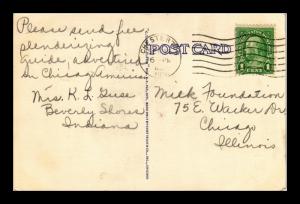 Please send free
slenderizing
guide, advertised
in Chicago American
Mrs. K. L. Guse
Beverly Shores
Indiana
POST CARD
Milk Foundation
75 E. Wacker Dr
Chicago
Illinois
1 CENT 1